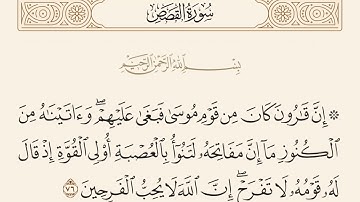 سُورَةُ القَصَصِ
بِسْمِ اللَّهِ الرَّحْمَٰنِ الرَّحِيمِ
۞ إِنَّ قَٰرُونَ كَانَ مِن قَوْمِ مُوسَىٰ فَبَغَىٰ عَلَيْهِمْ ۖ وَءَاتَيْنَٰهُ مِنَ
ٱلْكُنُوزِ مَآ إِنَّ مَفَاتِحَهُۥ لَتَنُوٓأُ بِٱلْعُصْبَةِ أُو۟لِى ٱلْقُوَّةِ إِذْ قَالَ
لَهُۥ قَوْمُهُۥ لَا تَفْرَحْ ۖ إِنَّ ٱللَّهَ لَا يُحِبُّ ٱلْفَرِحِينَ ٧٦